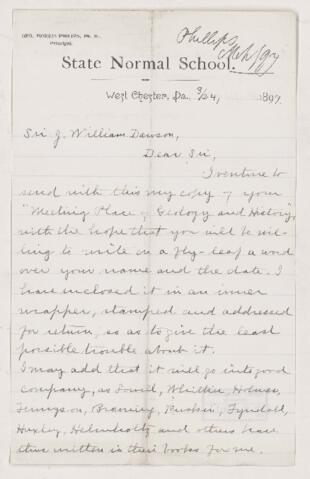 GEO. MORRIS PHILIPS, PH. D.,
Principal.
Phillips
State Normal School.
West Chester, Pa. 3/24, 1897
Sir J. William Dawson,
Dear Sir,
I venture to
send with this my copy of your
"Meeting Place of Geology and History",
with the hope that you will be wil-
ling to write on a fly-leaf a word
over your name and the date. I
have inclosed it in an inner
wrapper, stamped and addressed
for return, so as to give the least
possible trouble about it.
I may add that it will go into good
company, as Lowell, Whittier, Holmes,
Tennyson, Browning, Ruskin, Tyndall,
Huxley, Helmholtz and others have
thus written in their books for me.